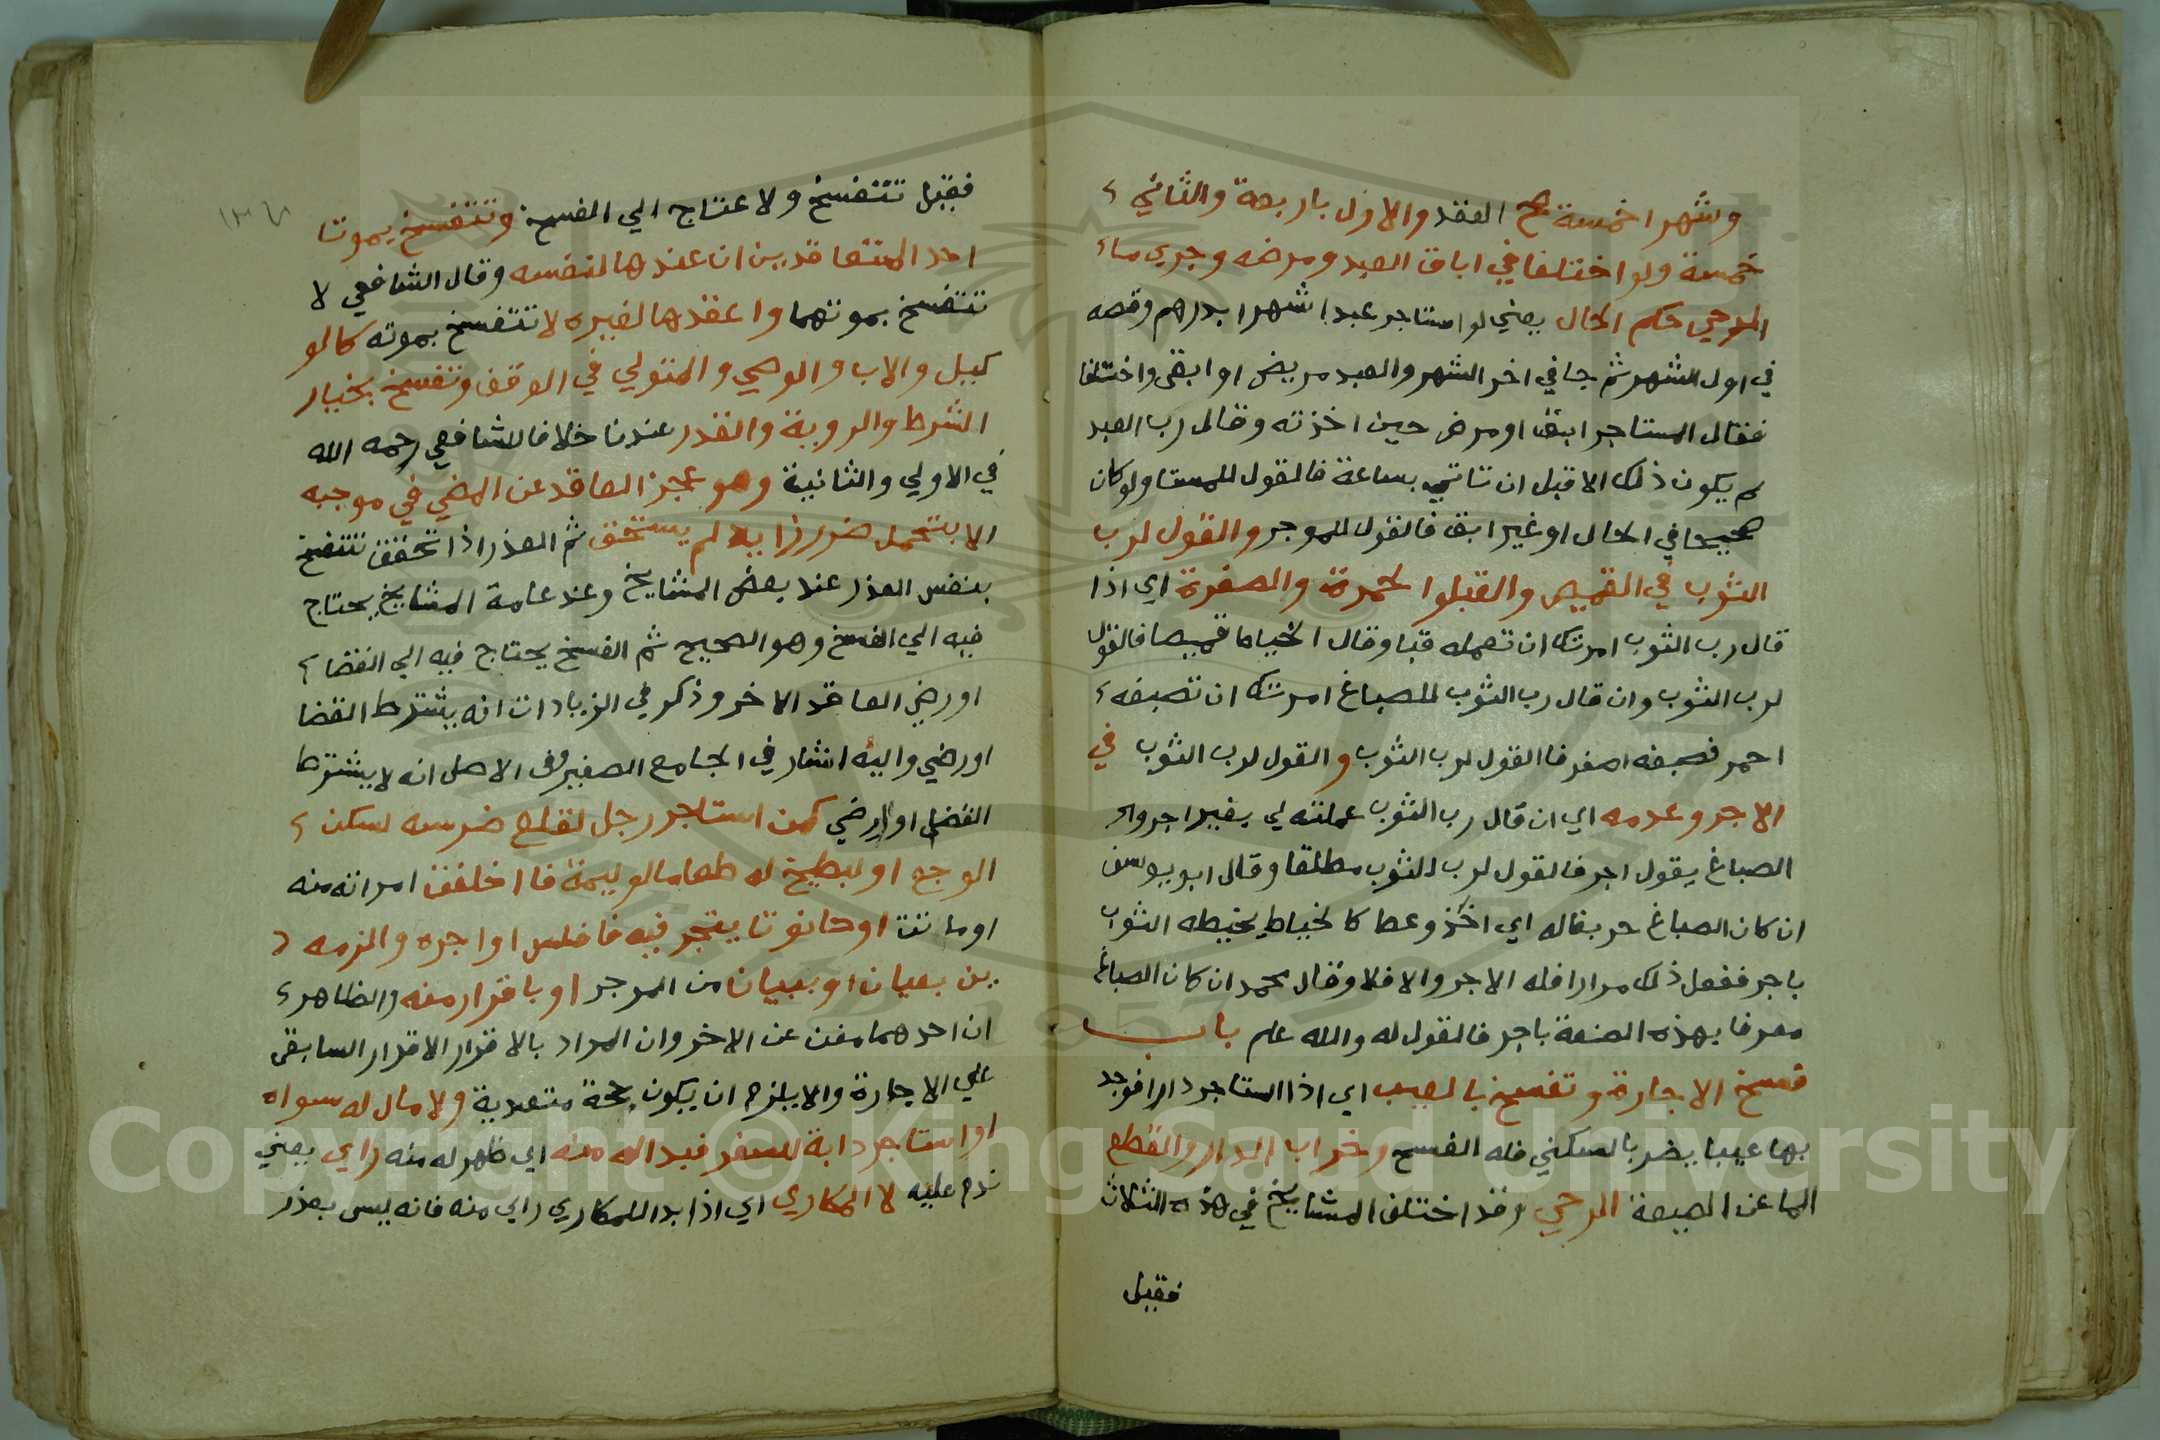 وشهرا خمسة صح العقد والاول باربعة والثاني
خمسة ولو اختلفا في اباق العبد ومرضه وجري ماء
الرحي حكم الحال يعني لو استاجر عبدا شهرا بدرهم وقبضه
في اول الشهر ثم جا في اخر الشهر والعبد مريض او ابقى واختلفا
فقال المستاجر ابق او مرض حين اخذته وقال رب العبد
لم يكون ذلك الا قبل ان تاتي بساعة فالقول للمستا ولو كان
صحيحا في الحال او غير ابق فالقول للموجر والقول لرب
الثوب في القميص والقبلوا لحمرة والصفرة اي اذا
قال رب الثوب امرتك ان تعمله قبا وقال الخياط قميصا فالقول
لرب الثوب وان قال رب الثوب للصباغ امرتك ان تصبغه
احمر فصبغه اصفر فا القول لرب الثوب والقول لرب الثوب في
الاجر وعدمه اي ان قال رب الثوب عملته لي بغير اجر وال
الصباغ يقول اجر فالقول لرب الثوب مطلقا وقال ابو يوسف
ان كان الصباغ حريفا له اي اخذ وعطا كالخياط يخيط له الثوب
باجر ففعل ذلك مرارا فله الاجر والا فلا وقال محمد ان كان الصباغ
معرفا بهذه الصنعة باجر فالقول له والله علم باب
فسخ الاجارة وتفسخ بالعيب اي اذا استاجر دارا فوجد
بها عيبا يضر بالسكني فله الفسخ وخراب الدار والقطع
الما عن الضيعة الرحي وقد اختلف المشايخ في هذه الثلاث
فقيل
فقيل تنفسخ ولا عتاج الي الفسخ وتنفسخ بموتا
احد المتعاقدين ان عندها لنفسه وقال الشافعي لا
تنفسخ بموتهما وا عقدها لغيره لا تنفسخ بموته كالو
كيل والاب والوصي والمتولي في الوقف وتفسخ بخيار
الشرط والروية والعذر عندنا خلافا للشافعي رحمه الله
في الاولي والثانية وهو عجز العاقد عن المضي في موجبه
الا بتحمل ضرر زايد لم يستحق ثم العذر اذا تحقق تنفسخ
بنفس العذر عند بعض المشايخ وعند عامة المشايخ يحتاج
فيه الي الفسخ وهو الصحيح ثم الفسخ يحتاج فيه الي القضا
او رضي العاقد الاخر وذكر في الزيادات انه يشترط القضا
او رضي واليه اشار في الجامع الصغير وفى الاصل انه لا يشترط
القضا او ارضي كمن استاجر رجل لقلع ضرسه لسكن
الوجع او ليطبخ له طعام الوليمة فا اختلفت امراته منه
او ماتت او حانوتا يتجر فيه فافلس او اجره والزمه د
ين بعيان او ببيان من الموجر او باقرار منه والظاهر
ان احدهما مغن عن الاخر وان المراد بالاقرار الاقرار السابق
علي الاجارة والا يلزم ان يكون حجة متعدية ولا مال له سواه
او استاجر دابة للسفر فبدا له منه اي ظهر له منه راي يعني
ندم عليه لا المكاري اي اذا بدا للمكاري راي منه فانه ليس بعذر
Copyright © King Saud University
1957